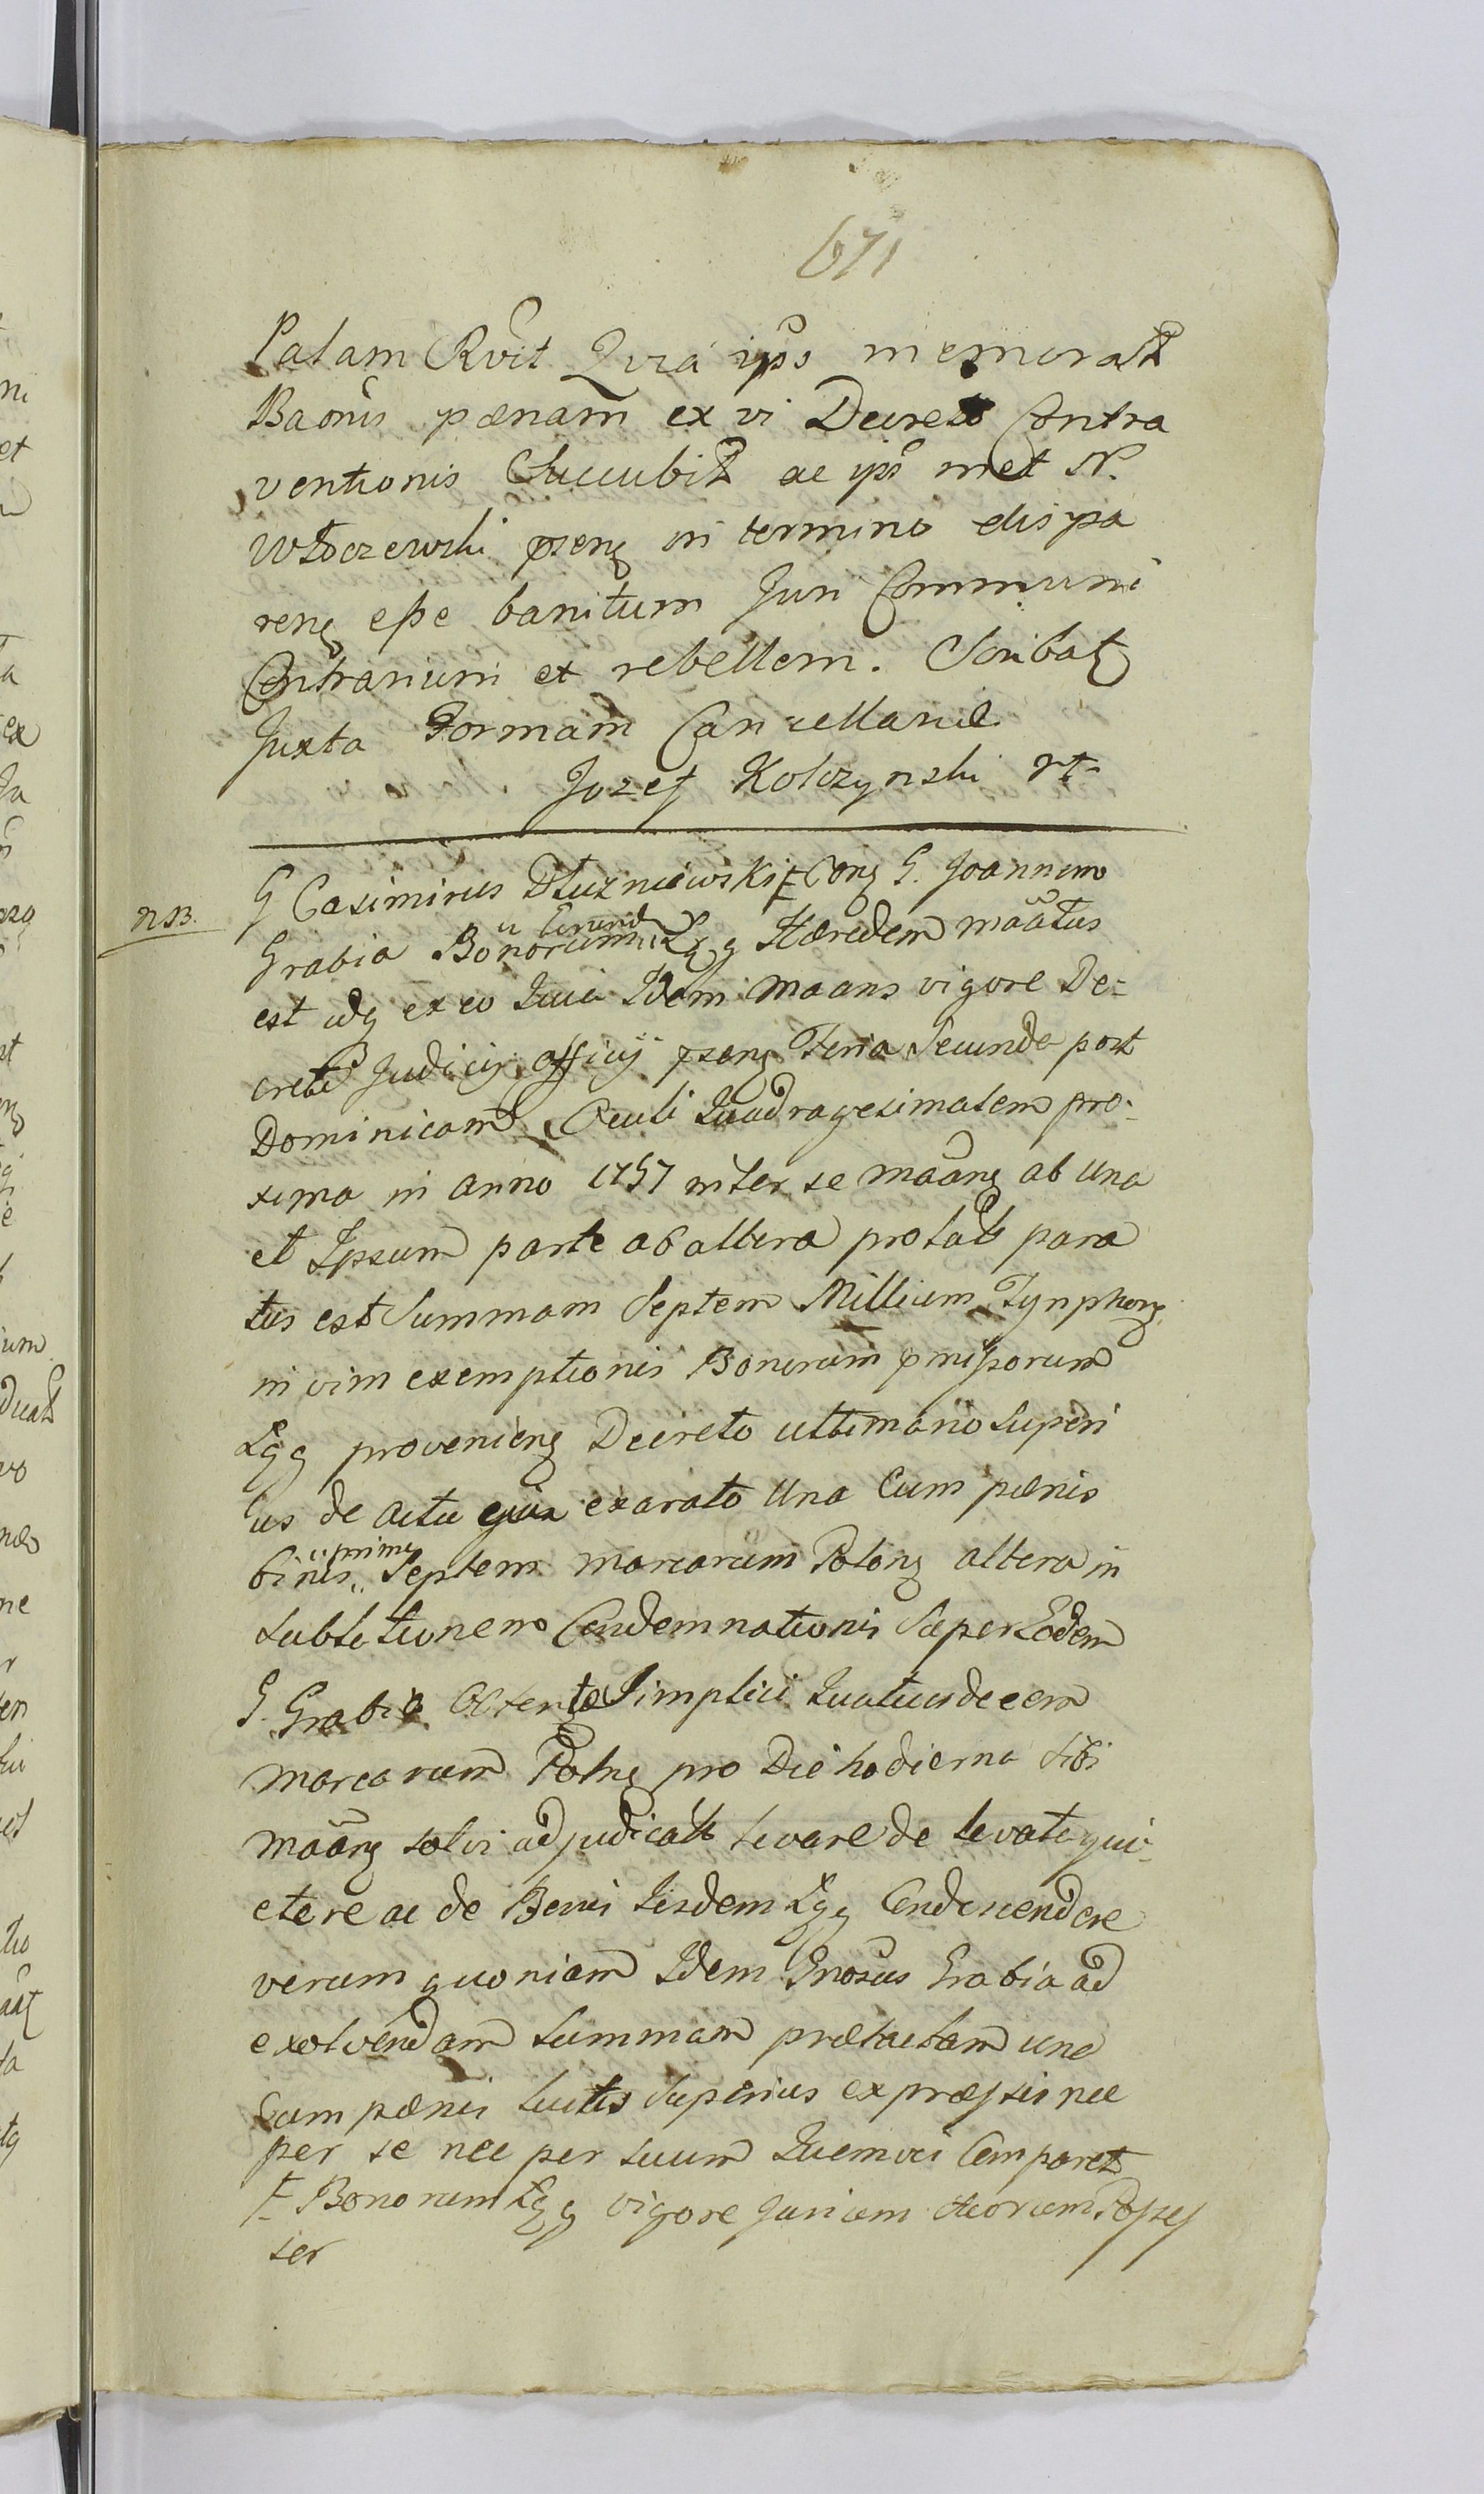 671
Palam Rvit Quia ips memorat
Baonis pænam ex vi Decreto Contra
ventionis Succubit ac ips met N.
Włoczewski psens in termino dispa
rens esse banitum Juri Communi
Contrarium et rebellem. Scribat
Juxta Formam Cancellariæ
Jozef Kolczynski rt
G Casimirus Dłuzniewski Ŧ Cons G. Joannem
n.B.
Grabia Bonorum Lgg Hæredem maatus
est idq ex eo quia Idem maans vigore De=
creti Judicij officij psens Feria Secunda post
Dominicam Oculi Quadragesimalem pro=
xima in anno 1757 inter se maans ab una
et Ipsum parte ab altera prolati para
tus est Summam Septem Millium Tynphons
in vim exemptionis Bonorum pmissorum
Lgg proveniens Decreto ultimario Superi
us de actu exarato Una Cum pænis
binis prima Septem marcarum Polons altera in
Condemnationis Super Eodem
G. Grabia Obtents Simplici quatuordecem
marcarum Polns pro Die hodierna sibi
maans solvi adjudicatis levare de levato qui=
etare ac de Bonis Iisdem Lgg Condescendere
verum quoniam Idem Gnosus Grabia ad
exolvendam Summam prætactam una
Cum pænis luitis Superius expræssis nec
per se nec per suum quemvis Comparet
Ŧ Bonorum Lgg vigore Jurium suorum Posses
ser